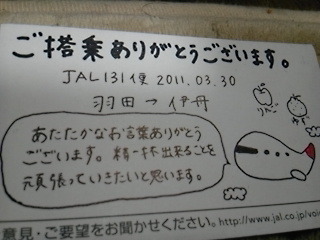 ご搭乗ありがとうございます。
JAL131便 2011.03.30
羽田→伊丹
りんご
あたたかなお言葉ありがとう
ございます。精一杯出来ることを
頑張っていきたいと思います。
意見・ご要望をお聞かせください。http://www.jal.co.jp/voi